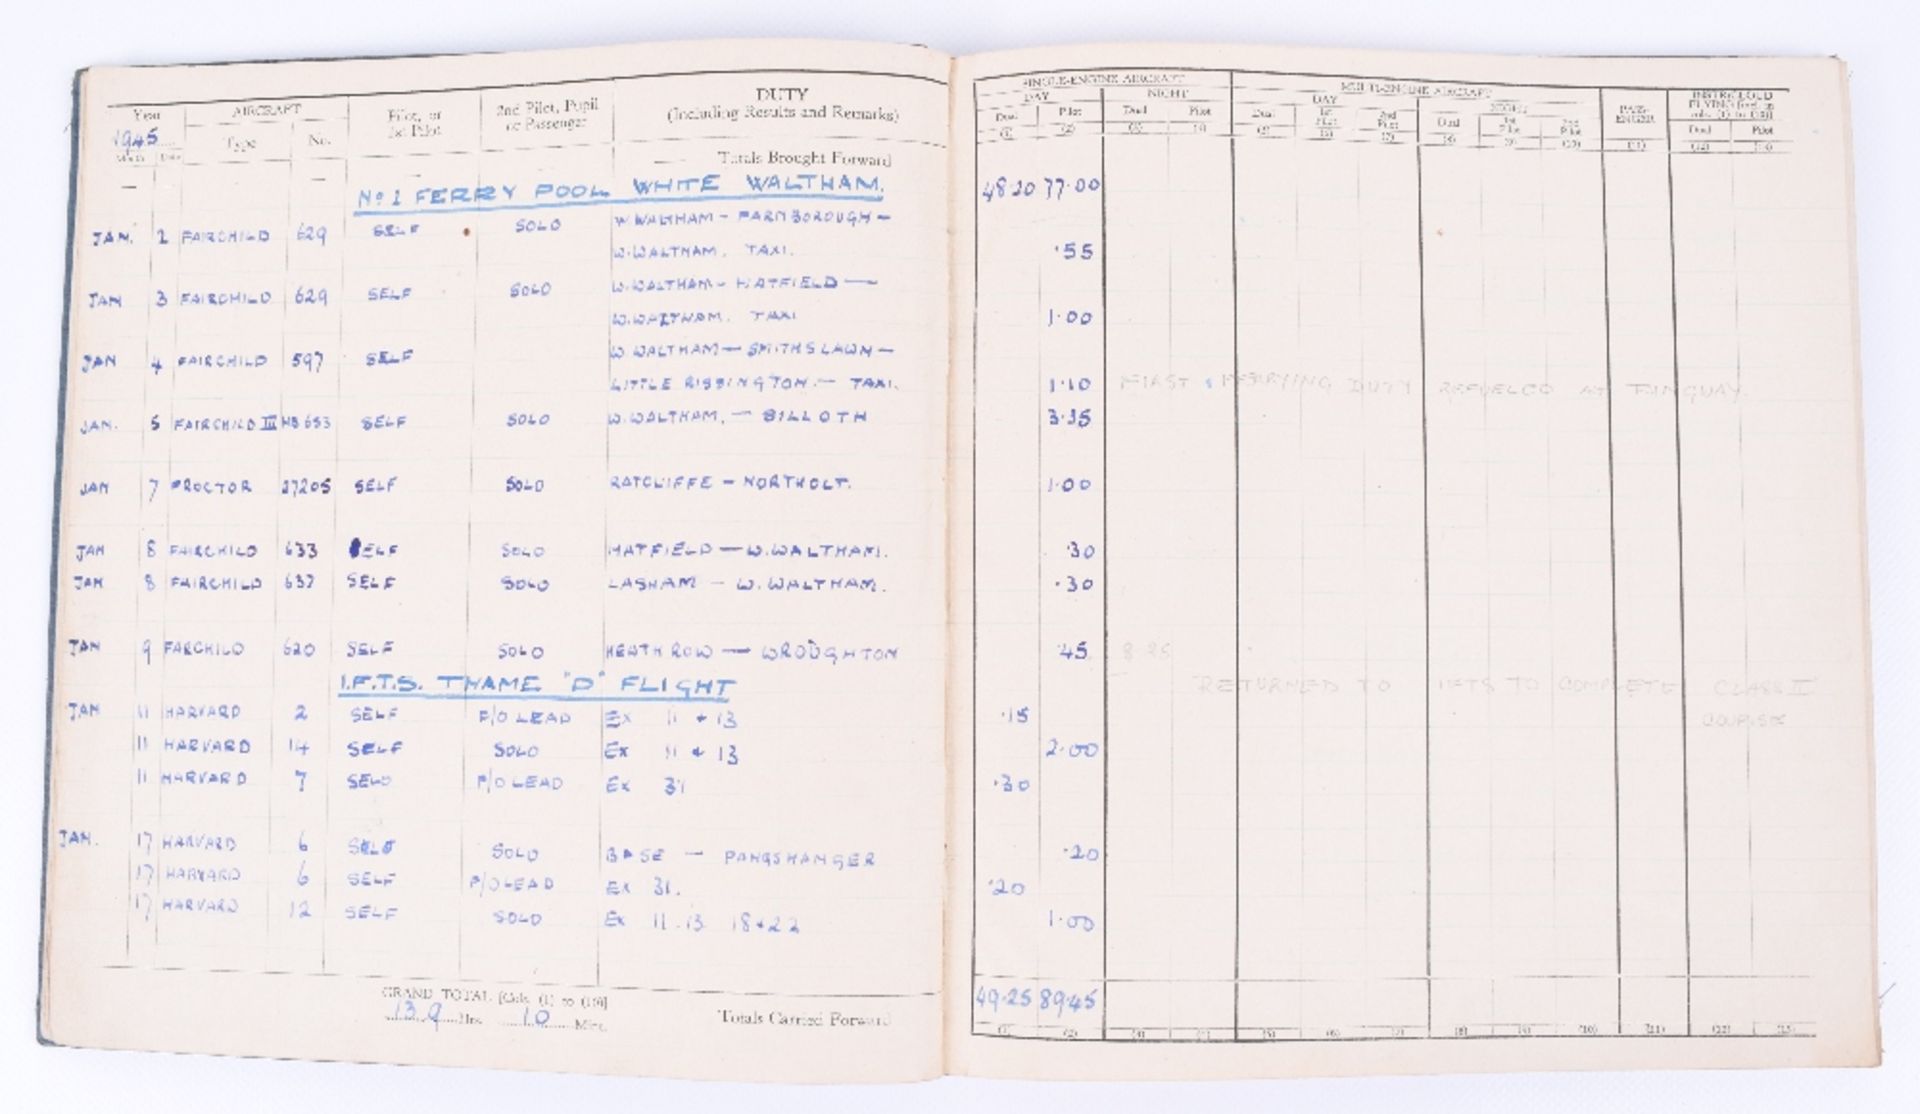 Year AIRCRAFT Pilot, or 1st Pilot 2nd Pilot, Pupil or Passenger DUTY (Including Results and Remarks)
1945 Month Date Type No.
Totals Brought Forward
SINGLE-ENGINE AIRCRAFT MULTI-ENGINE AIRCRAFT
DAY NIGHT DAY NIGHT
Dual Pilot Dual Pilot Dual 1st Pilot 2nd Pilot Dual 1st Pilot 2nd Pilot Dual Pilot
(1) (2) (3) (4) (5) (6) (7) (8) (9) (10) (11) (12) (13)
No 1 FERRY POOL WHITE WALTHAM. 48.20 77.00
JAN. 2 FAIRCHILD 629 SELF SOLO W WALTHAM - FARNBOROUGH -
W.WALTHAM. TAXI. .55
JAN 3 FAIRCHILD 629 SELF SOLO W.WALTHAM - HATFIELD —
W.WALTHAM. TAXI 1.00
JAN 4 FAIRCHILD 597 SELF W.WALTHAM — SMITHSLAWN —
LITTLE RISSINGTON. — TAXI. 1.10 FIRST FERRYING DUTY REFUELED AT
JAN. 5 FAIRCHILD III HB 653 SELF SOLO W.WALTHAM. — SILLOTH
JAN 7 PROCTOR SELF SOLO RATCLIFFE — NORTHOLT. 1.00
JAN 8 FAIRCHILD 633 SELF SOLO HATFIELD — W.WALTHAM. .30
JAN 8 FAIRCHILD SELF SOLO LASHAM — W. WALTHAM. .30
JAN 9 FARCHILD 620 SELF SOLO HEATH ROW — WROUGHTON .45
I.F.T.S. THAME "D" FLIGHT RETURNED TO IFTS TO COMPLETE CLASS II
JAN 11 HARVARD 2 SELF F/O LEAD EX 11 & 13 .15 COURSE
11 HARVARD 14 SELF SOLO EX 11 & 13 2.00
11 HARVARD 7 F/O LEAD EX 31 .30
JAN. 17 HARVARD 6 SELF SOLO BASE — PANGSHANGER .20
17 HARVARD 6 SELF F/O LEAD EX 31. .20
17 HARVARD 12 SELF SOLO EX 11.13 18 & 22 1.00
GRAND TOTAL [Cols. (1) to (10)]
139 Hrs. 10 Mins.
Totals Carried Forward 49.25 89.45
(1) (2) (3) (4) (5) (6) (7) (8) (9) (10) (11) (12) (13)